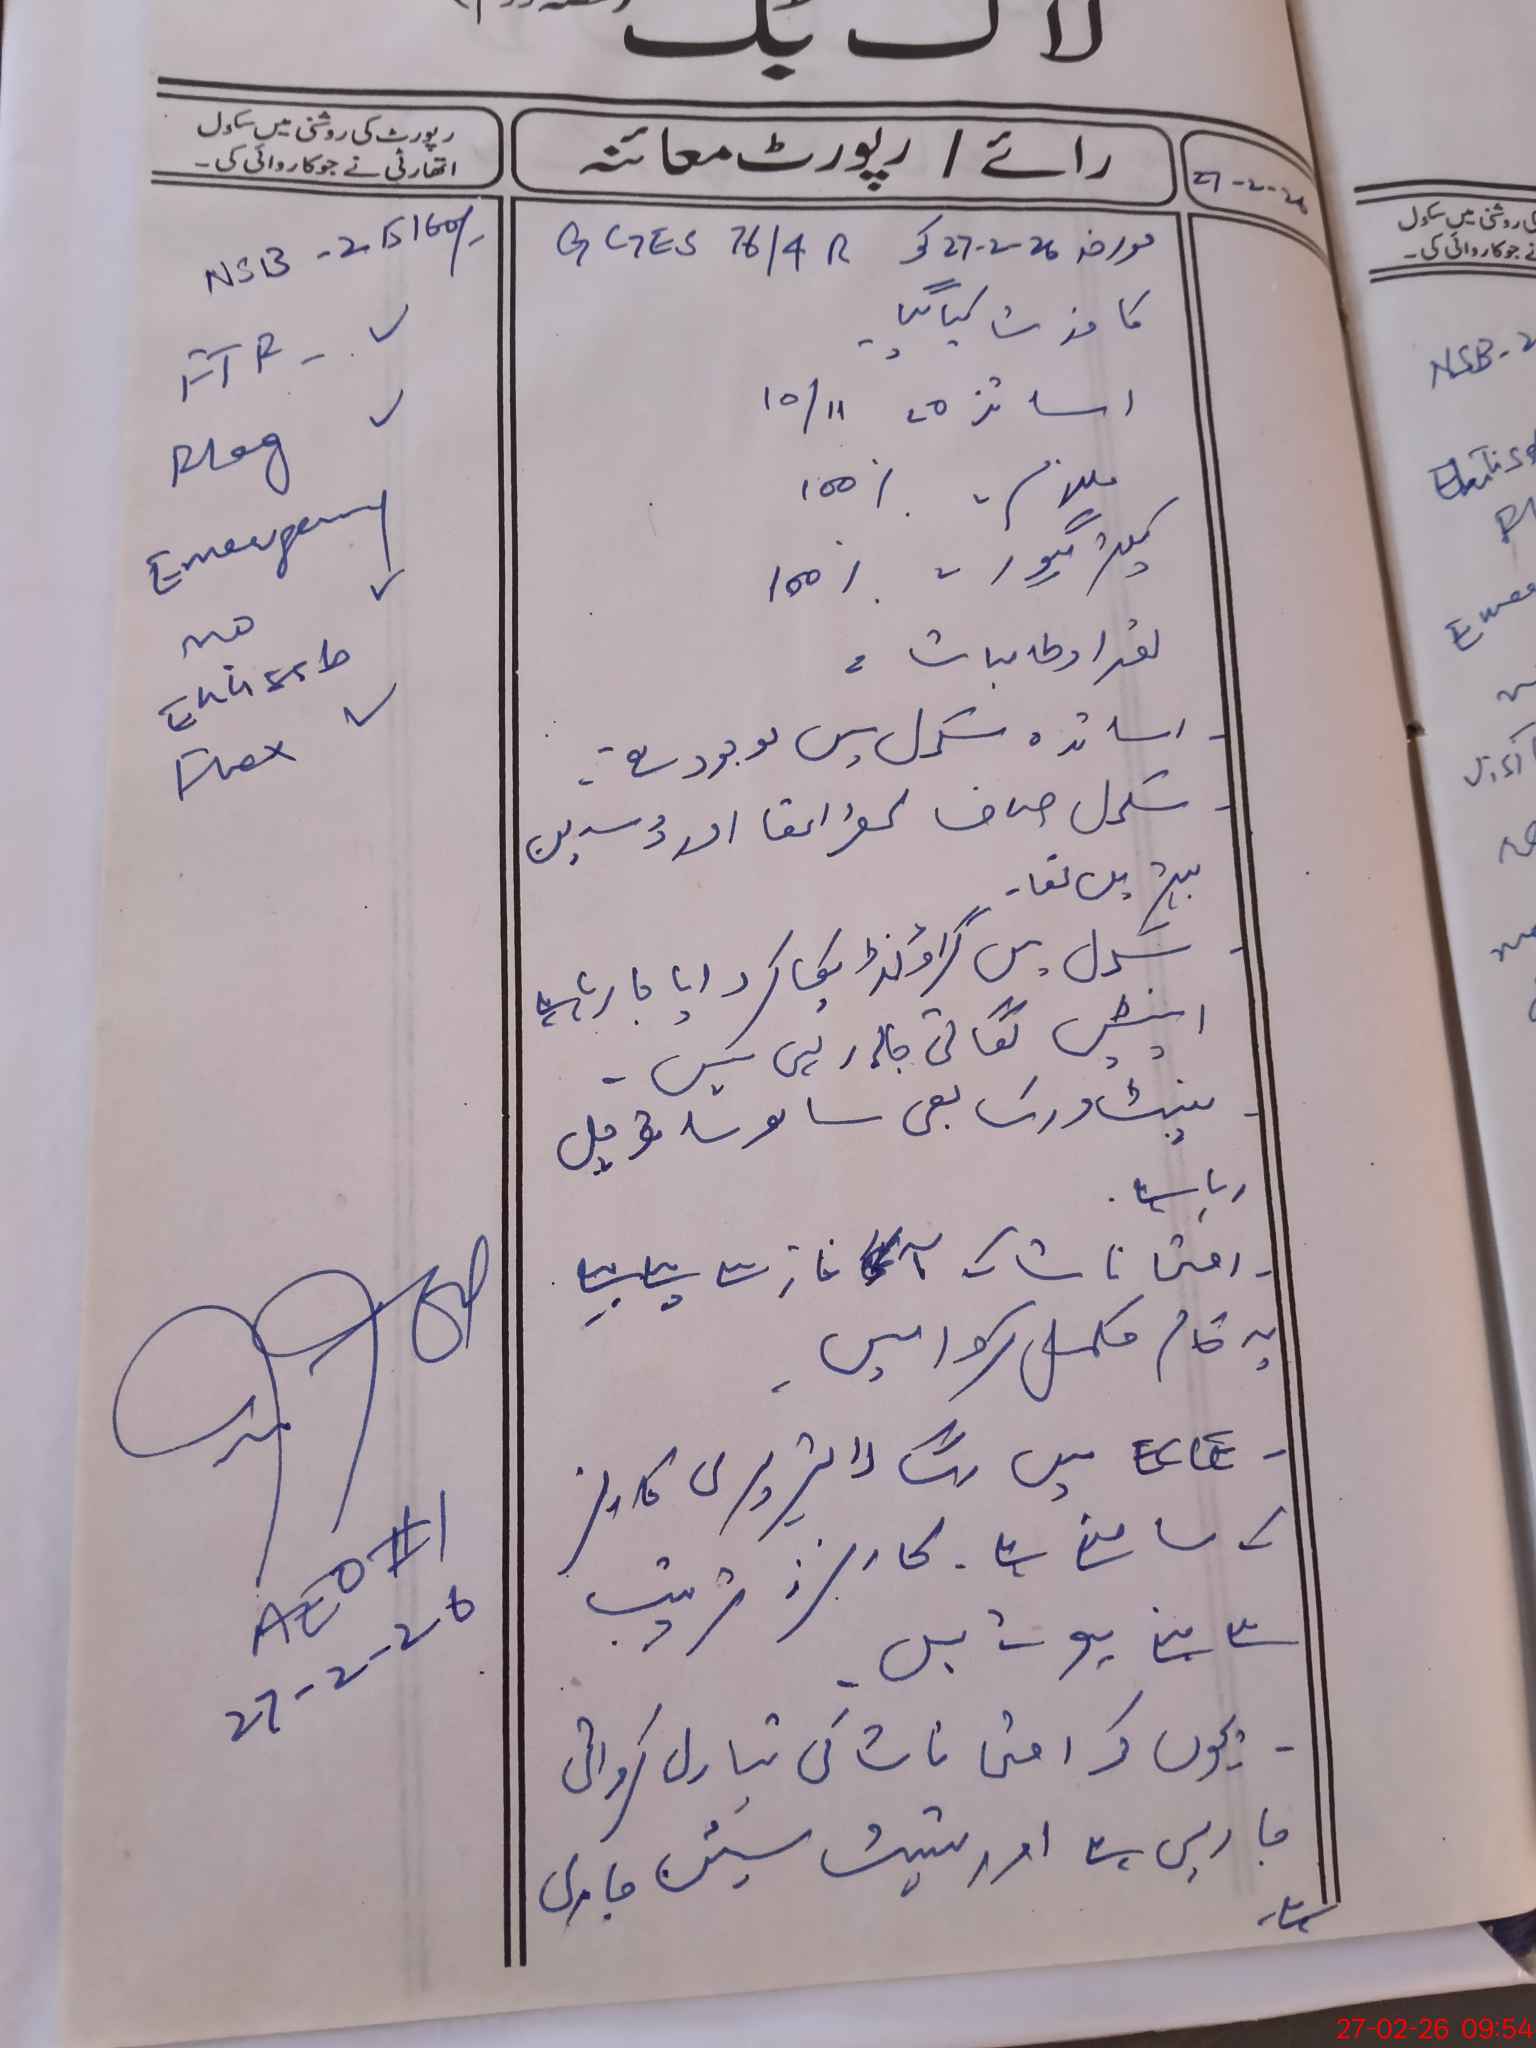 لاگ بک
رپورٹ کی روشنی میں سکول
اتھارٹی نے جو کاروائی کی۔
رائے / رپورٹ معائنہ
27-2-26
مورخہ 27-2-26 کو GGES 76/4R
کا وزٹ کیا گیا۔
اساتذہ 10/11
ملازم 100%
کیئر گیور 100%
تعداد طالبات
- اساتذہ سکول میں موجود تھے۔
- سکول صاف ستھرا تھا اور ڈسپلن
بہترین تھا۔
- سکول میں گراؤنڈ پکا کروایا جا رہا ہے
اینٹیں لگائی جا رہی ہیں۔
- پینٹ ورک بھی ساتھ ساتھ چل
رہا ہے۔
- امتحانات کے آغاز سے پہلے پہلے
یہ کام مکمل کروائیں۔
- ECE میں رگ لائبریری کارنر
کے سامنے ہے۔ کارنرز ترتیب
سے بنے ہوئے ہیں۔
- بچوں کو امتحانات کی تیاری کروائی
جا رہی ہے اور ٹیسٹ سیشن جاری
ہے۔
NSB - 215160/-
FTR - ✓
Flag ✓
Emergency
no ✓
Flex ✓
AEO #1
27-2-26
رپورٹ کی روشنی میں سکول
نے جو کاروائی کی۔
NSB - 2
27-02-26 09:54